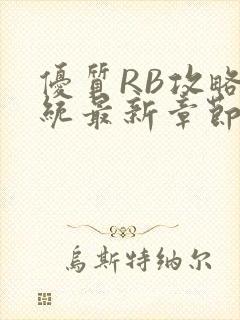 優質RB攻略
統最新章節
烏斯特纳尔